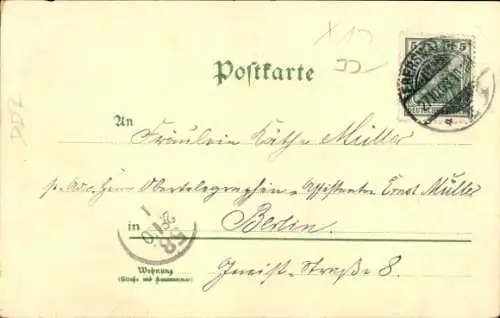 5 5
Postkarte
An Fräulein Käthe Müller
p. Adr. Herrn Obertelegraphen-Assistenten Ernst Müller
in Berlin.
Wohnung
(Straße und Hausnummer)
Straße 8.